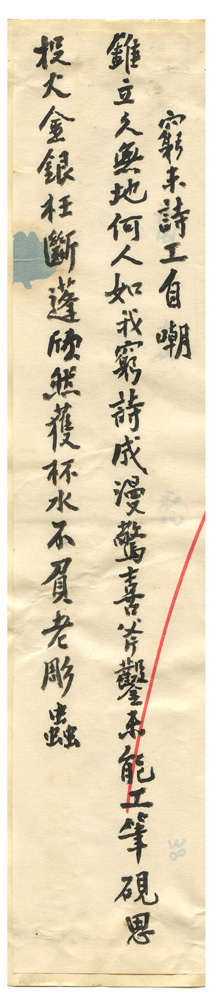 窮未詩工自嘲
錐立久無地何人如我窮詩成漫驚喜斧鑿未能工筆硯思
投火金銀枉斷蓬然獲杯水不負老彫蟲